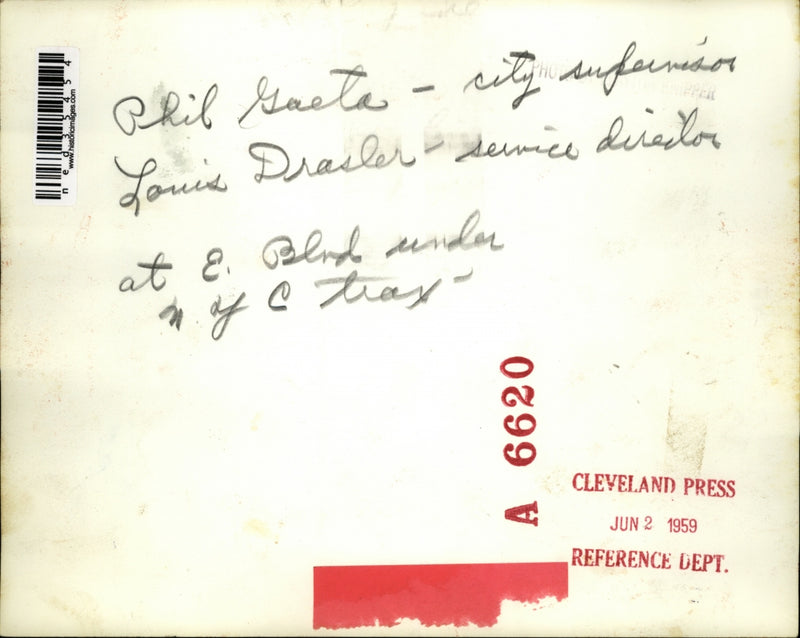 Phil Gaeta - city supervisor
Louis Drasler - service director
at E. Blvd under
N Y C trax -
A 6620
CLEVELAND PRESS
JUN 2 1959
REFERENCE DEPT.
ned35454
www.historicimages.com